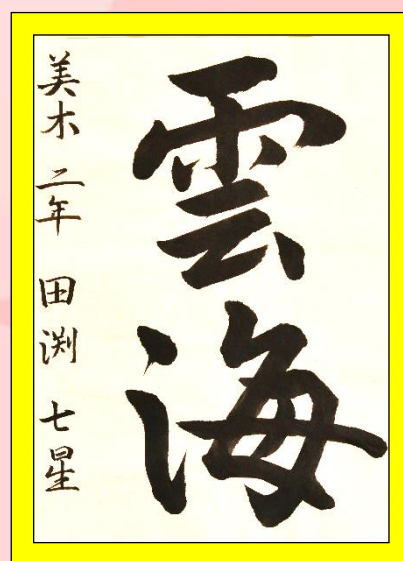 雲海
美木 二年 田渕 七星